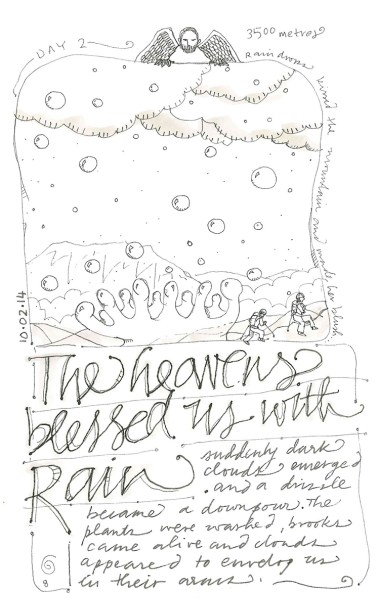 DAY 2
3500 metres
Raindrops kissed the mountain and made her blush.
10.02.14
The heavens
blessed us with
Rain
suddenly dark
clouds emerged
and a drizzle
became a downpour. The
plants were washed, brooks
came alive and clouds
appeared to envelop us
in their arms.
8